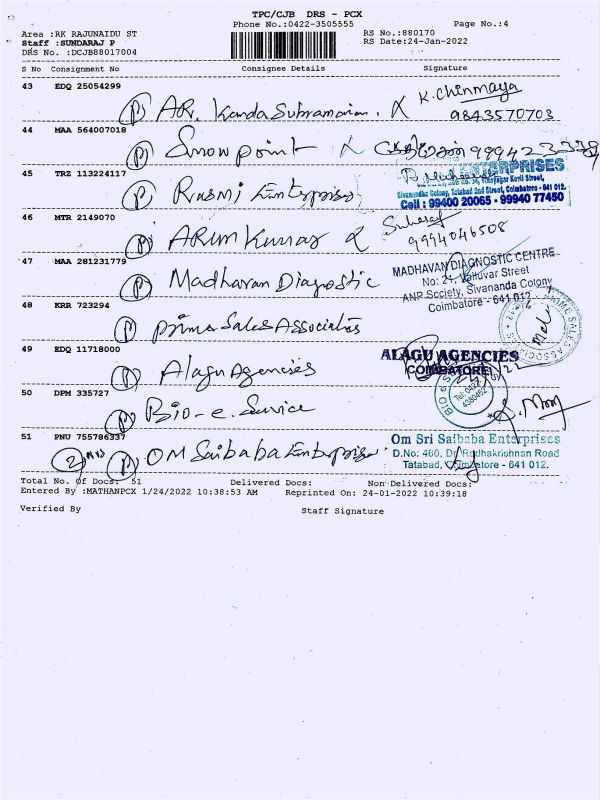 TPC/CJB DRS - PCX
Phone No.:0422-3505555 Page No.:4
Area :RK RAJUNAIDU ST RS No.:880170
Staff :SUNDARAJ P RS Date:24-Jan-2022
DRS No. :DCJB88017004
S No Consignment No Consignee Details Signature
43 EDQ 25054299
(P) AR. Kandasubramanian. K. Chinmaya
9843570703
44 MAA 564007018
(P) Snow point
45 TRZ 113224117
(P) Rasmi Enterprises
ENTERPRISES
Sivanandha Colony, Tatabad 2nd Street, Coimbatore - 641 012.
Cell : 99400 20065 - 99940 77450
46 MTR 2149070
(P) ARUN Kumar
9994046508
47 MAA 281231779
(P) Madhavan Diagnostic
MADHAVAN DIAGNOSTIC CENTRE
No: 21, Valluvar Street
ANP Society, Sivananda Colony
Coimbatore - 641 012
48 KRR 723294
(P) prime Sales Associates
PRIME SALES ASSOCIATES
49 EDQ 11718000
(P) Alagu Agencies
ALAGU AGENCIES
COIMBATORE
50 DPM 335727
(P) Bio-e. Service
4380452
51 PNU 755786337
(P) OM Saibaba Enterprise
Om Sri Saibaba Enterprises
D.No: 460, Dr. Radhakrishnan Road
Tatabad, Coimbatore - 641 012.
Total No. Of Docs: 51 Delivered Docs: Non Delivered Docs:
Entered By :MATHANPCX 1/24/2022 10:38:53 AM Reprinted On: 24-01-2022 10:39:18
Verified By Staff Signature